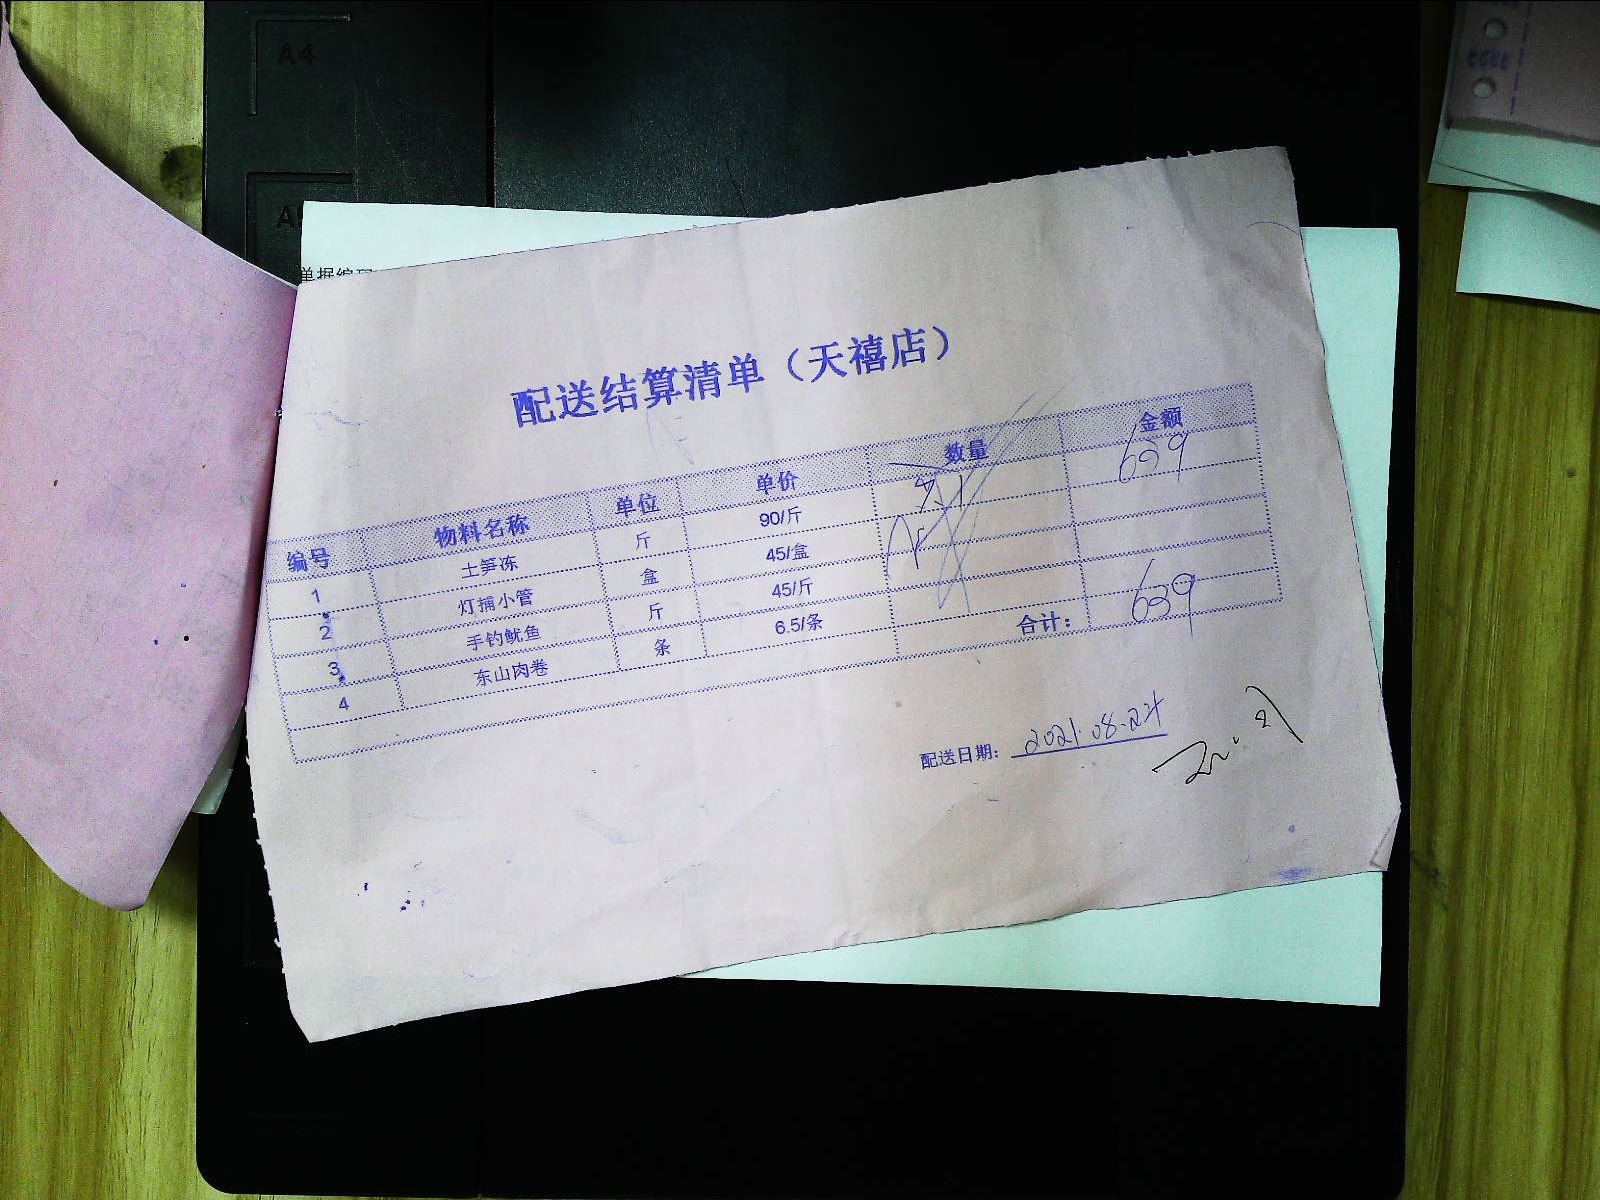 A4
配送结算清单（天禧店）
编号 物料名称 单位 单价 数量 金额
1 土笋冻 斤 90/斤 639
2 灯捕小管 盒 45/盒
3 手钓鱿鱼 斤 45/斤
4 东山肉卷 条 6.5/条
合计： 639
配送日期： 2021.08.24